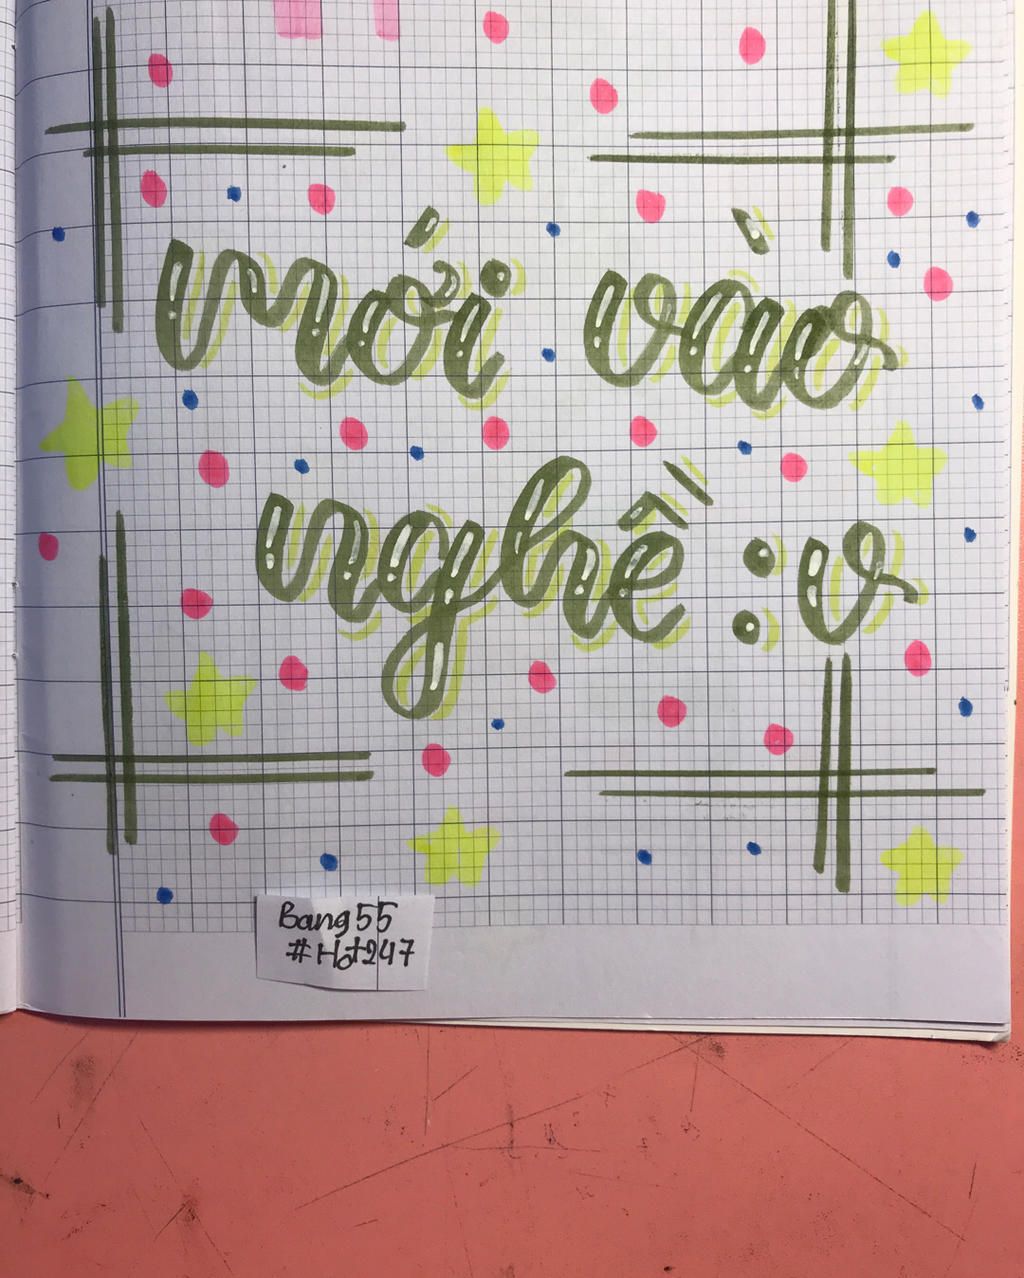 mới vào
nghề :v
Bang55
#Hot247